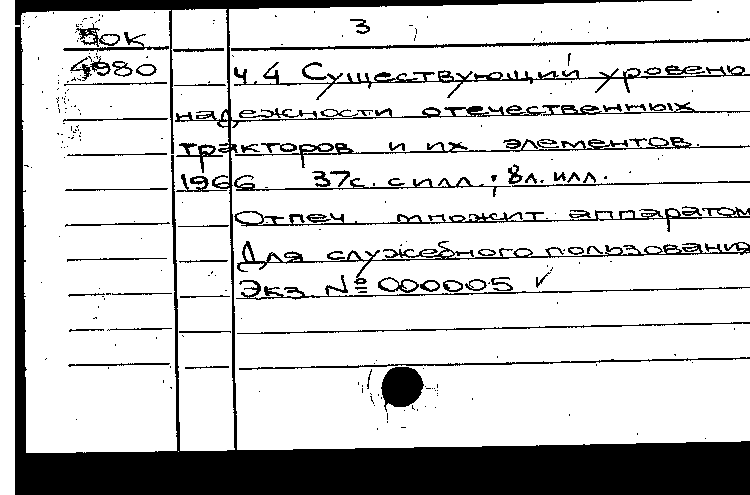 3
50К
4980 ч.4 Существующий уровень
надежности отечественных
тракторов и их элементов.
1966 37с. с илл.; 8л. илл.
Отпеч. множит. аппаратом
Для служебного пользования
Экз № 000005 ✓